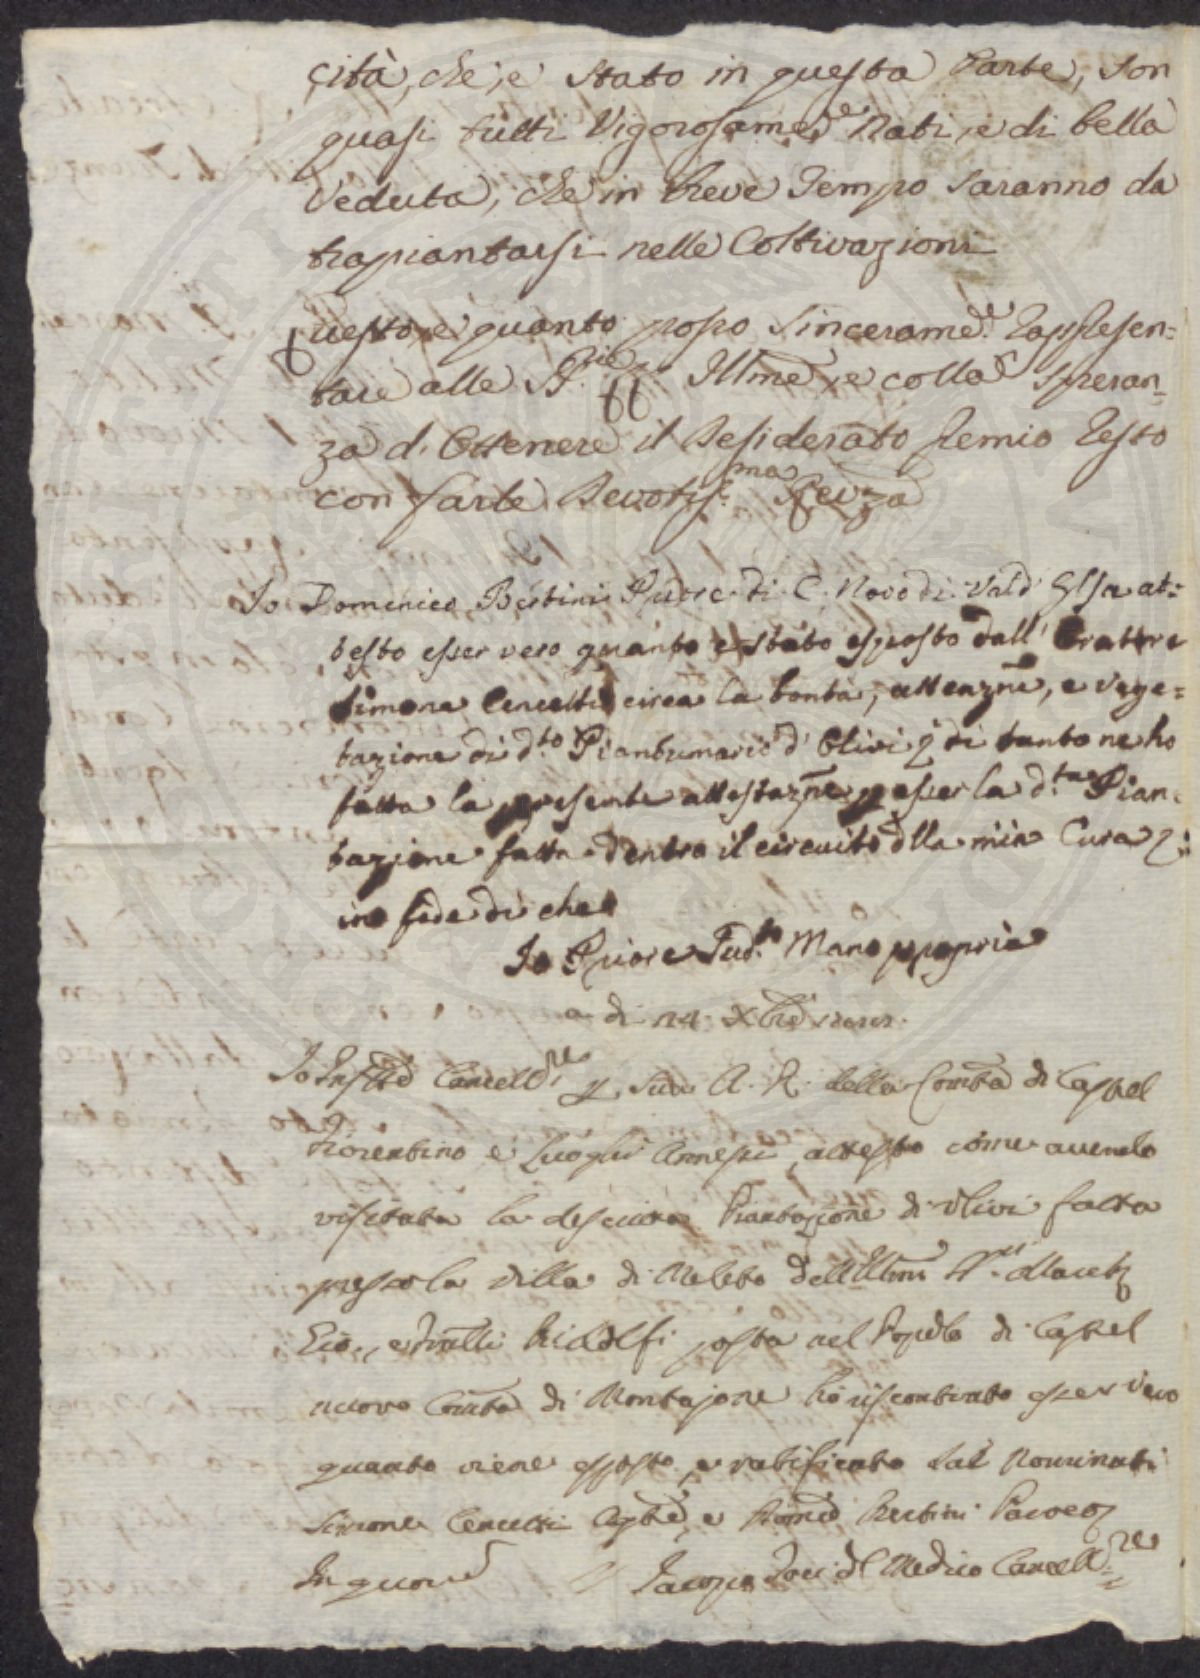 cità, che, e stato in questa Parte, son
quasi tutti Vigorosame.te Nati, e di bella
Veduta, che in breve Tempo saranno da
trapiantarsi nelle Coltivazioni
Questo, e quanto posso Sincerame.te Rappresen=
tare alle SS.rie Ill.me, e colla Speran=
za d'Ottenere il Desiderato Premio Resto
con farle Devotiss.ma Reverza
Io Domenico Bertini Priore di C. Novo di Vald'Elsa at=
testo esser vero quanto e stato esposto dall' Oratore
Simone Cencetti circa la bonta, attenzne, e vege=
tazione di d.to Piantumario d'Olivi e di tanto ne ho
fatta la presente attestazne per esser la d.ta Pian=
tazione fatta dentro il circuito dlla mia Cura
in fede di che
Io Priore Sud.to Mano propria
a di 24 Xbre
Io Infrto Cancell.re p Sua A. R. della Comta di Castel
Fiorentino e Luoghi Annessi attesto come avendo
visitata la descritta Piantazione di Ulivi fatta
presso la Villa di Meleto dell'Illmi SS.ri March
Gio., e Fratelli Ridolfi posta nel Popolo di Castel
nuovo Comta di Montajone ho riscontrato esser vero
quanto viene esposto, e ratificato dal Nominati
Simone Cencetti, e Domco Bertini Paroco
In quor
Jacopo del Medico Cancell.re